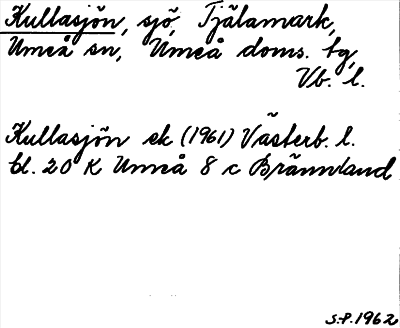 Kullasjön, sjö, Tjälamark,
Umeå sn, Umeå doms. tg,
Vb. l.
Kullasjön ek (1961) Västerb. l.
bl. 20 K Umeå 8 c Brännland
S.P. 1962